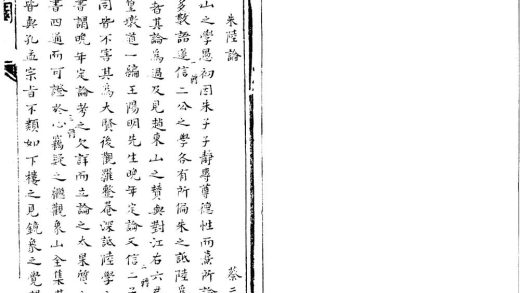 朱陸論 蔡
山之學愚初因朱子子靜專尊德性而熹所論
多數語遂信二公之學各有所偏朱之詆陸
其論為過及見趙東山之贊與對江右六
墩道一編王陽明先生晚年定論又信二子
同皆不害其為大賢後觀羅整菴深詆陸學
書謂晚年定論考之欠詳而立論之太果質
書四通而可證於心竊疑之繼觀象山全集其
皆與孔孟宗旨不類如下樓之見鏡象之覺